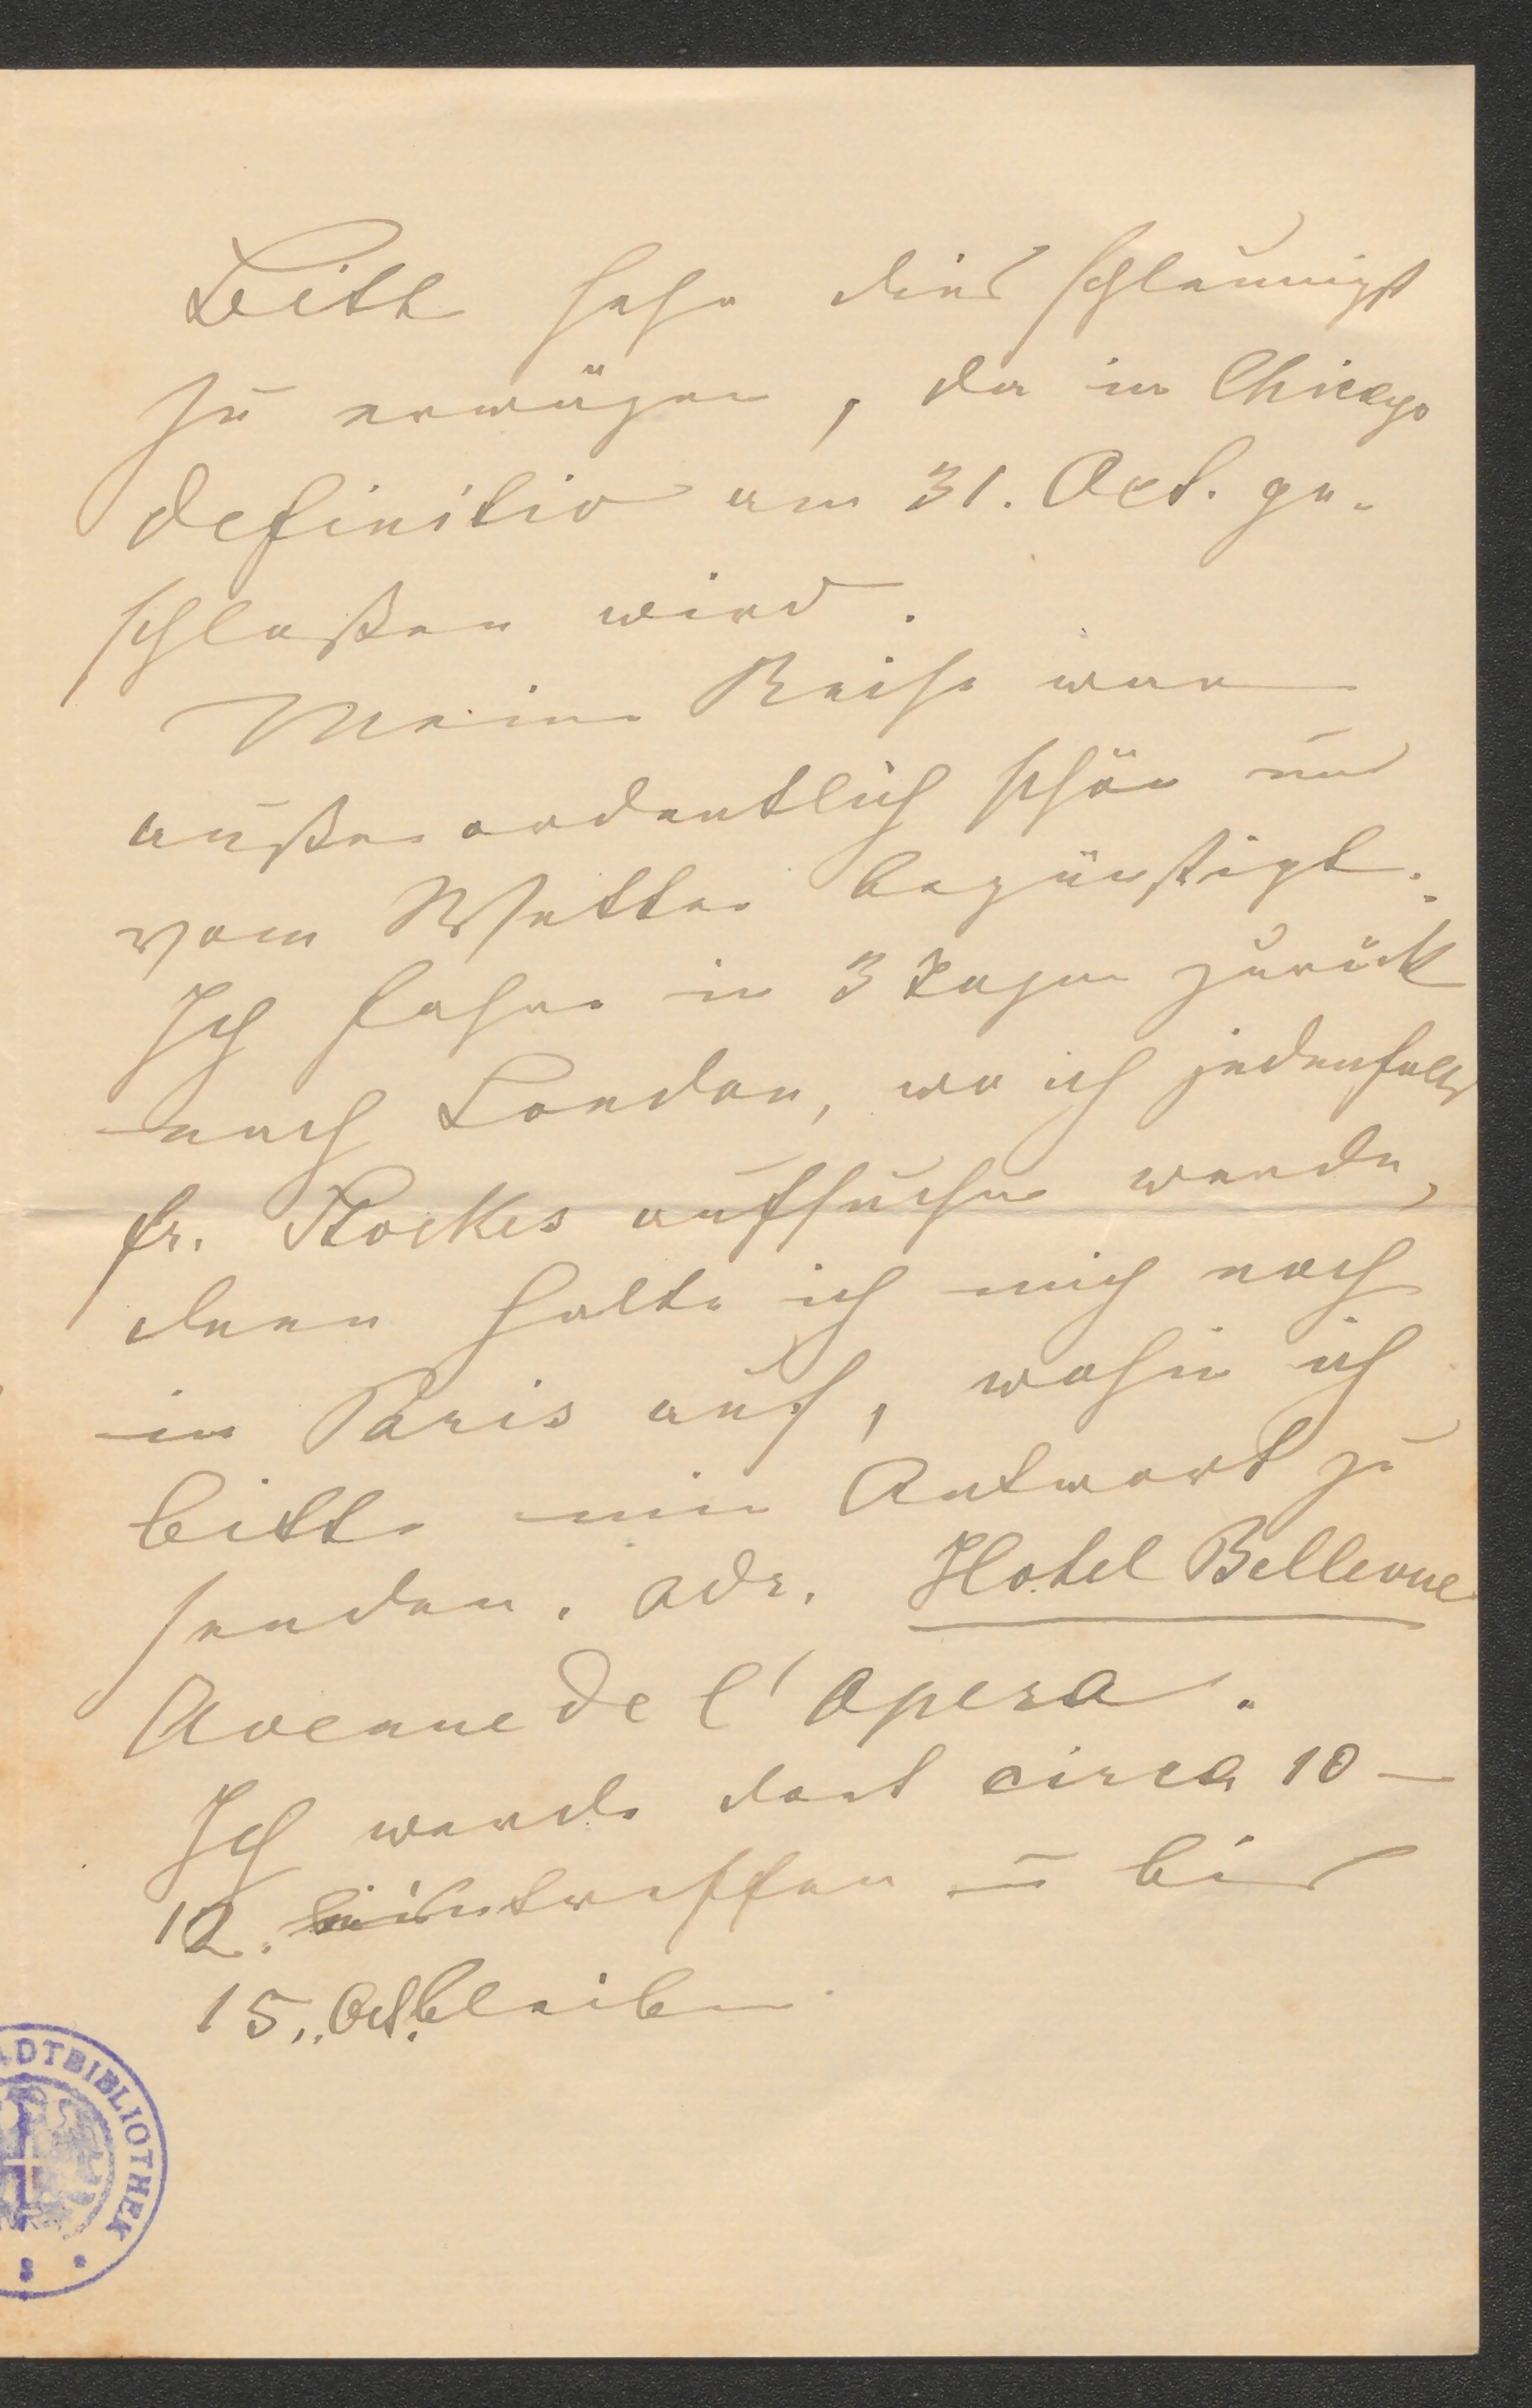 Bitte sehr dies schleunigst
zu erwägen, da in Chicago
definitiv am 31. Oct. ge-
schloßen wird.
Meine Reise war
außerordentlich schön und
vom Wetter begünstigt.
Ich fahre in 3 Tagen zurück
nach London, wo ich jedenfalls
fr. Stockes aufsuchen werde,
dann halte ich mich noch
in Paris auf, wohin ich
bitte mir Antwort zu
senden. Adr. Hotel Bellevue
Avenue de l'Opera.
Ich werde dort circa 10 –
12. eintreffen u bis
15. Oct. bleiben.
ADTBIBLIOTHEK